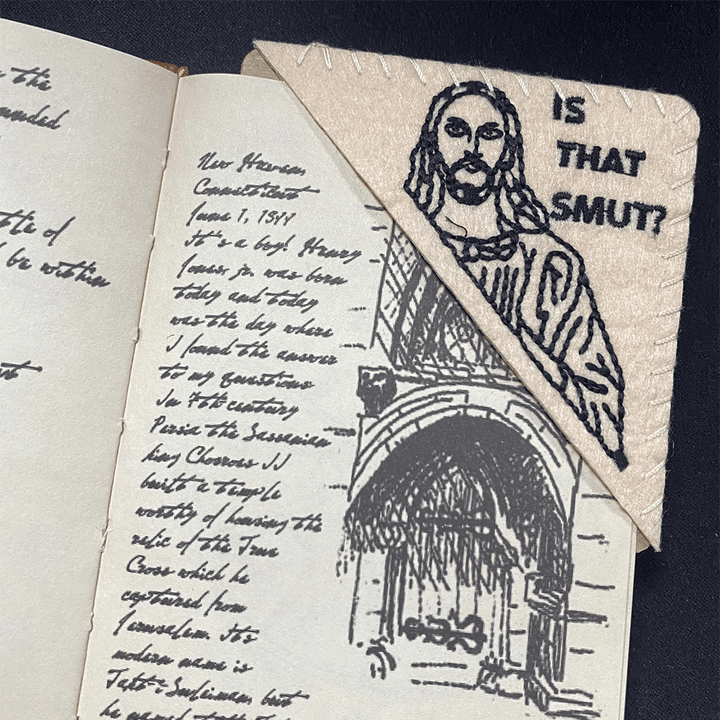 the
unded
ble of
be within
IS
THAT
SMUT?
New Haven
Connecticut
June 1, 1899
It's a boy! Henry
Jones, jr. was born
today and today
was the day where
I found the answer
to my questions
In 7th century
Persia the Sassanian
king Chosroes II
built a temple
worthy of housing the
relic of the True
Cross which he
captured from
Jerusalem. It's
modern name is
Takt-i-Suleiman but
he named